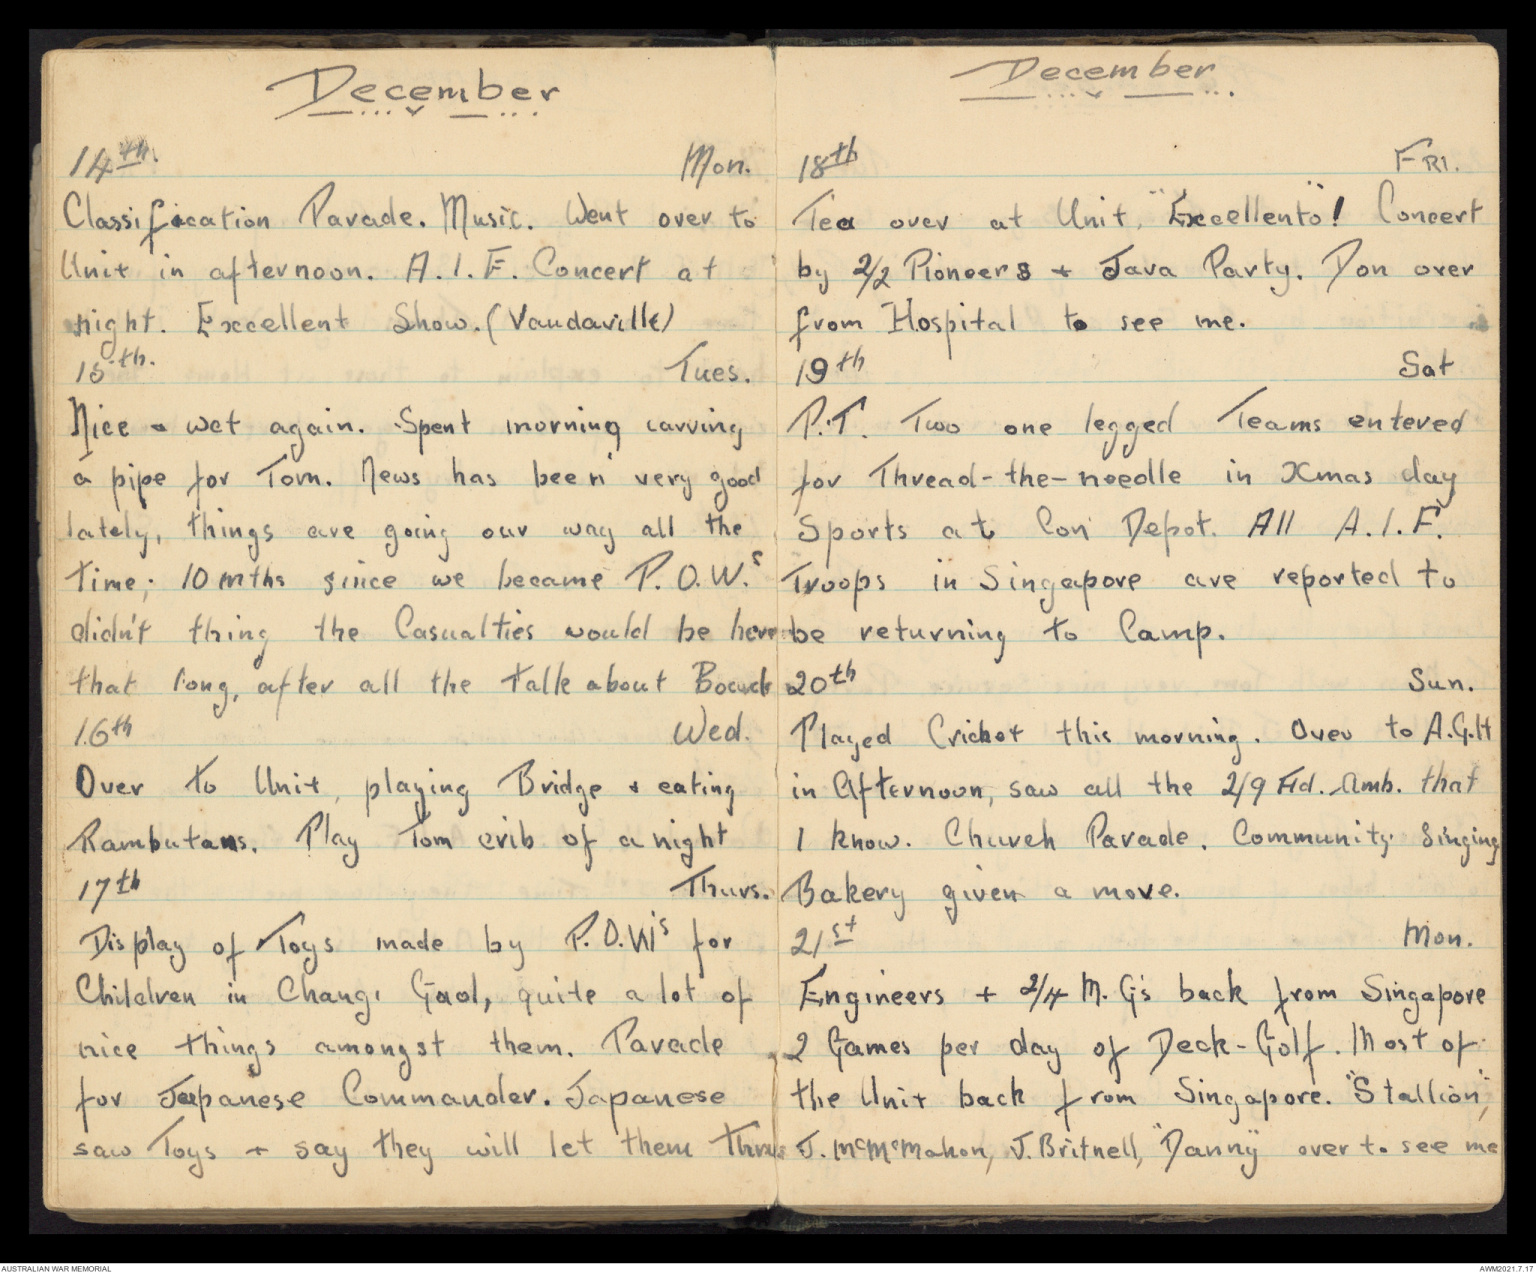 December
14th. Mon.
Classification Parade. Music. Went over to
Unit in afternoon. A.I.F. Concert at
night. Excellent Show. (Vaudaville)
15th. Tues.
Nice & wet again. Spent morning carving
a pipe for Tom. News has been very good
lately, things are going our way all the
time; 10 mths since we became P.O.W.s
didn't thing the Casualties would be here
that long, after all the talk about
16th Wed.
Over to Unit, playing Bridge & eating
Rambutans. Play Tom crib of a night
17th Thurs.
Display of Toys made by P.O.W's for
Children in Changi Gaol, quite a lot of
nice things amongst them. Parade
for Japanese Commander. Japanese
saw Toys + say they will let them thru
December
18th FRI.
Tea over at Unit, "Excellento"! Concert
by 2/2 Pioneers + Java Party. Don over
from Hospital to see me.
19th Sat
P.T. Two one legged Teams entered
for Thread-the-needle in Xmas day
Sports at Con Depot. All A.I.F.
Troops in Singapore are reported to
be returning to Camp.
20th Sun.
Played Cricket this morning. Over to A.G.H
in Afternoon, saw all the 2/9 Fld. Amb. that
I know. Church Parade. Community Singing
Bakery given a move.
21st Mon.
Engineers + 2/4 M.G's back from Singapore
2 Games per day of Deck-Golf. Most of
the Unit back from Singapore. "Stallion",
J. McMcMahon, J. Britnell, "Danny" over to see me
AUSTRALIAN WAR MEMORIAL
AWM2021.7.17